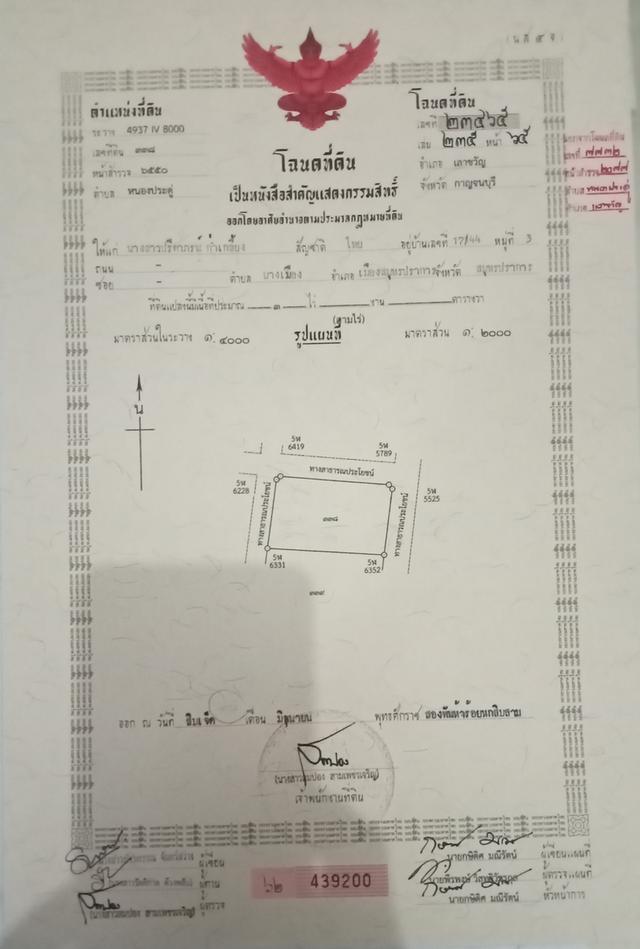 (น.ส. ๔ จ)
ตำแหน่งที่ดิน
ระวาง 4937 IV 8000
เลขที่ดิน ๓๓๘
หน้าสำรวจ ๖๕๕๐
ตำบล หนองประดู่
โฉนดที่ดิน
เลขที่ ๒๓๔๖๕
เล่ม ๒๓๕ หน้า ๖๕
อำเภอ เลาขวัญ
จังหวัด กาญจนบุรี
เลขที่ ๗๗๓๒
โฉนดที่ดิน
เป็นหนังสือสำคัญแสดงกรรมสิทธิ์
ออกโดยอาศัยอำนาจตามประมวลกฎหมายที่ดิน
ให้แก่ นางสาวปริดาภรณ์ กำเกลี้ยง สัญชาติ ไทย อยู่บ้านเลขที่ 17/44 หมู่ที่ 3
ถนน - ซอย - ตำบล บางเมือง อำเภอ เมืองสมุทรปราการ จังหวัด สมุทรปราการ
ที่ดินแปลงนี้มีเนื้อที่ประมาณ ๓ ไร่ - งาน - ตารางวา
(สามไร่)
มาตราส่วนในระวาง ๑: ๔๐๐๐ รูปแผนที่ มาตราส่วน ๑: ๒๐๐๐
น
5พ 6419
5พ 5789
ทางสาธารณประโยชน์
5พ 6228
5พ 5525
ทางสาธารณประโยชน์
๓๓๘
ทางสาธารณประโยชน์
5พ 6331
5พ 6352
๓๓๙
ออก ณ วันที่ สิบเจ็ด เดือน มิถุนายน พุทธศักราช สองพันห้าร้อยหกสิบสาม
(นางสาวสมปอง สามเพชรเจริญ)
เจ้าพนักงานที่ดิน
ผู้เขียน
ผู้ทาน
(นางสาวสมปอง สามเพชรเจริญ) ผู้ตรวจ
๖๒ 439200
นายกษิดิศ มณีรัตน์ ผู้เขียนแผนที่
ผู้ตรวจแผนที่
นายกษิดิศ มณีรัตน์ หัวหน้าการ